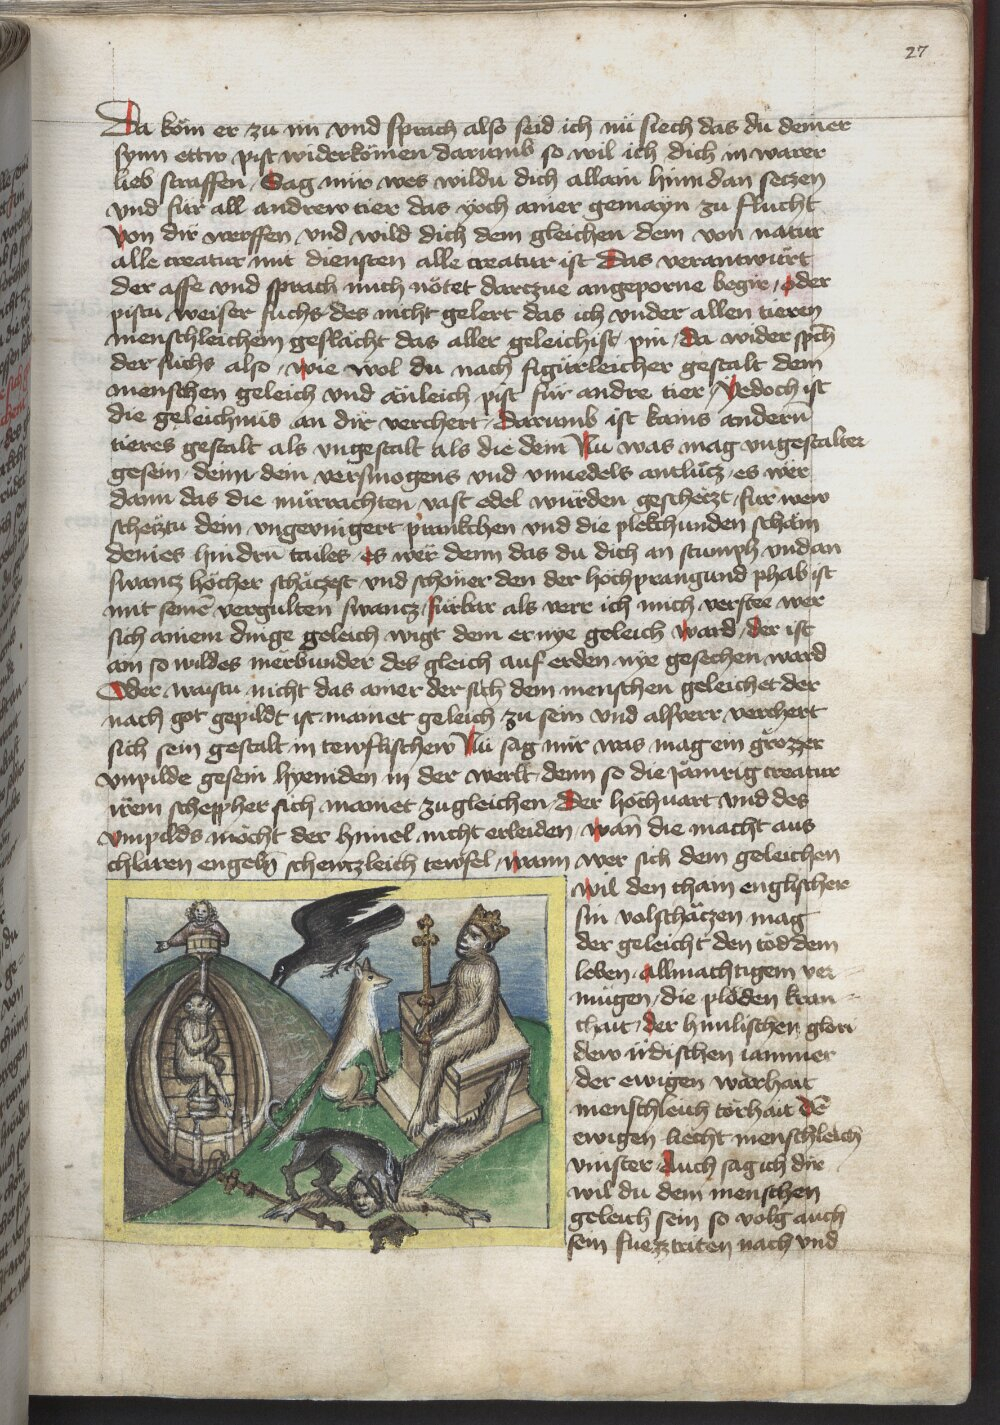 27
Da kom er zu im vnd sprach also seid ich nu siech das du deiner
synn ettw pist widerkömen darumb so wil ich dich in warer
lieb straffen Sag mir wes wildu dich allain hindan seczen
vnd für all andrew tier das yoch ainer gemayn zu flucht
von dir werffen vnd wild dich dem gleichen dem von natur
alle creatur mit diensten alle creatur ist Das verantwürt
der affe vnd sprach mich nötet darczue angeporne begir oder
pistu weiser fuchs des nicht gelert das ich vnder allen tieren
menschleichem geslächt das aller geleichist pin Da wider sprch
der fuchs also wie wol du nach figürleicher gestalt dem
menschen geleich vnd änleich pist für andre tier Yedoch ist
die geleichnus an dir verchert Darumb ist kains andern
tieres gestalt als vngestalt als die dein Nu was mag vngestalter
gesein denn dein versmogens vnd vnuedels antlücz es wër
dann das die murrachten vast edel würden geschëczt für wew
scheiztu dein vngevnigert prankchen vnd die plekchunden schäm
deines hindrn tailes es wër denn das du dich an stumph vnd an
swancz höcher schäczest vnd schöner den der höchprangund phab ist
mit seinē vergulten swancz fürbar als verr ich mich verstee wer
sich ainem dinge geleich wigt dem er nye geleich ward der ist
ain so wildes merbunder des gleich auf erden nye gesechen ward
Oder waistu nicht das ainer der sich dem menschen geleichet der
nach got gepildt ist mainet geleich zu sein vnd alsverr verchert
sich sein gestalt in tewflischew Nu sag mir was mag ein grözzer
vnpilde gesein hyeniden in der werlt denn so die jämrig creatur
irem schepher sich mainet zu gleichen Der höchuart vnd des
vnpilds möcht der hymel nicht erleiden wan die macht aus
chlaren engeln schewczleich tewfel wann wer sich dem geleichen
wil den cham englischer
sin volschäczen mag
der geleicht den töd dem
leben allmachtigem ver
mügen die plöden kran
chait der himlischen glori
dew irdischen iammer
der ewigen warhait
menschleich törhait Dē
ewigen liecht menschleich
vinster Auch sag ich dir
wil du dem menschen
geleich sein so volg auch
sein fuezztriten nach vnd